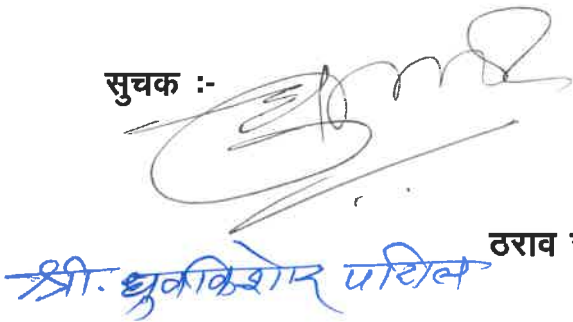 सुचक :-
ठराव
श्री. ध्रुवकिशोर पाटील